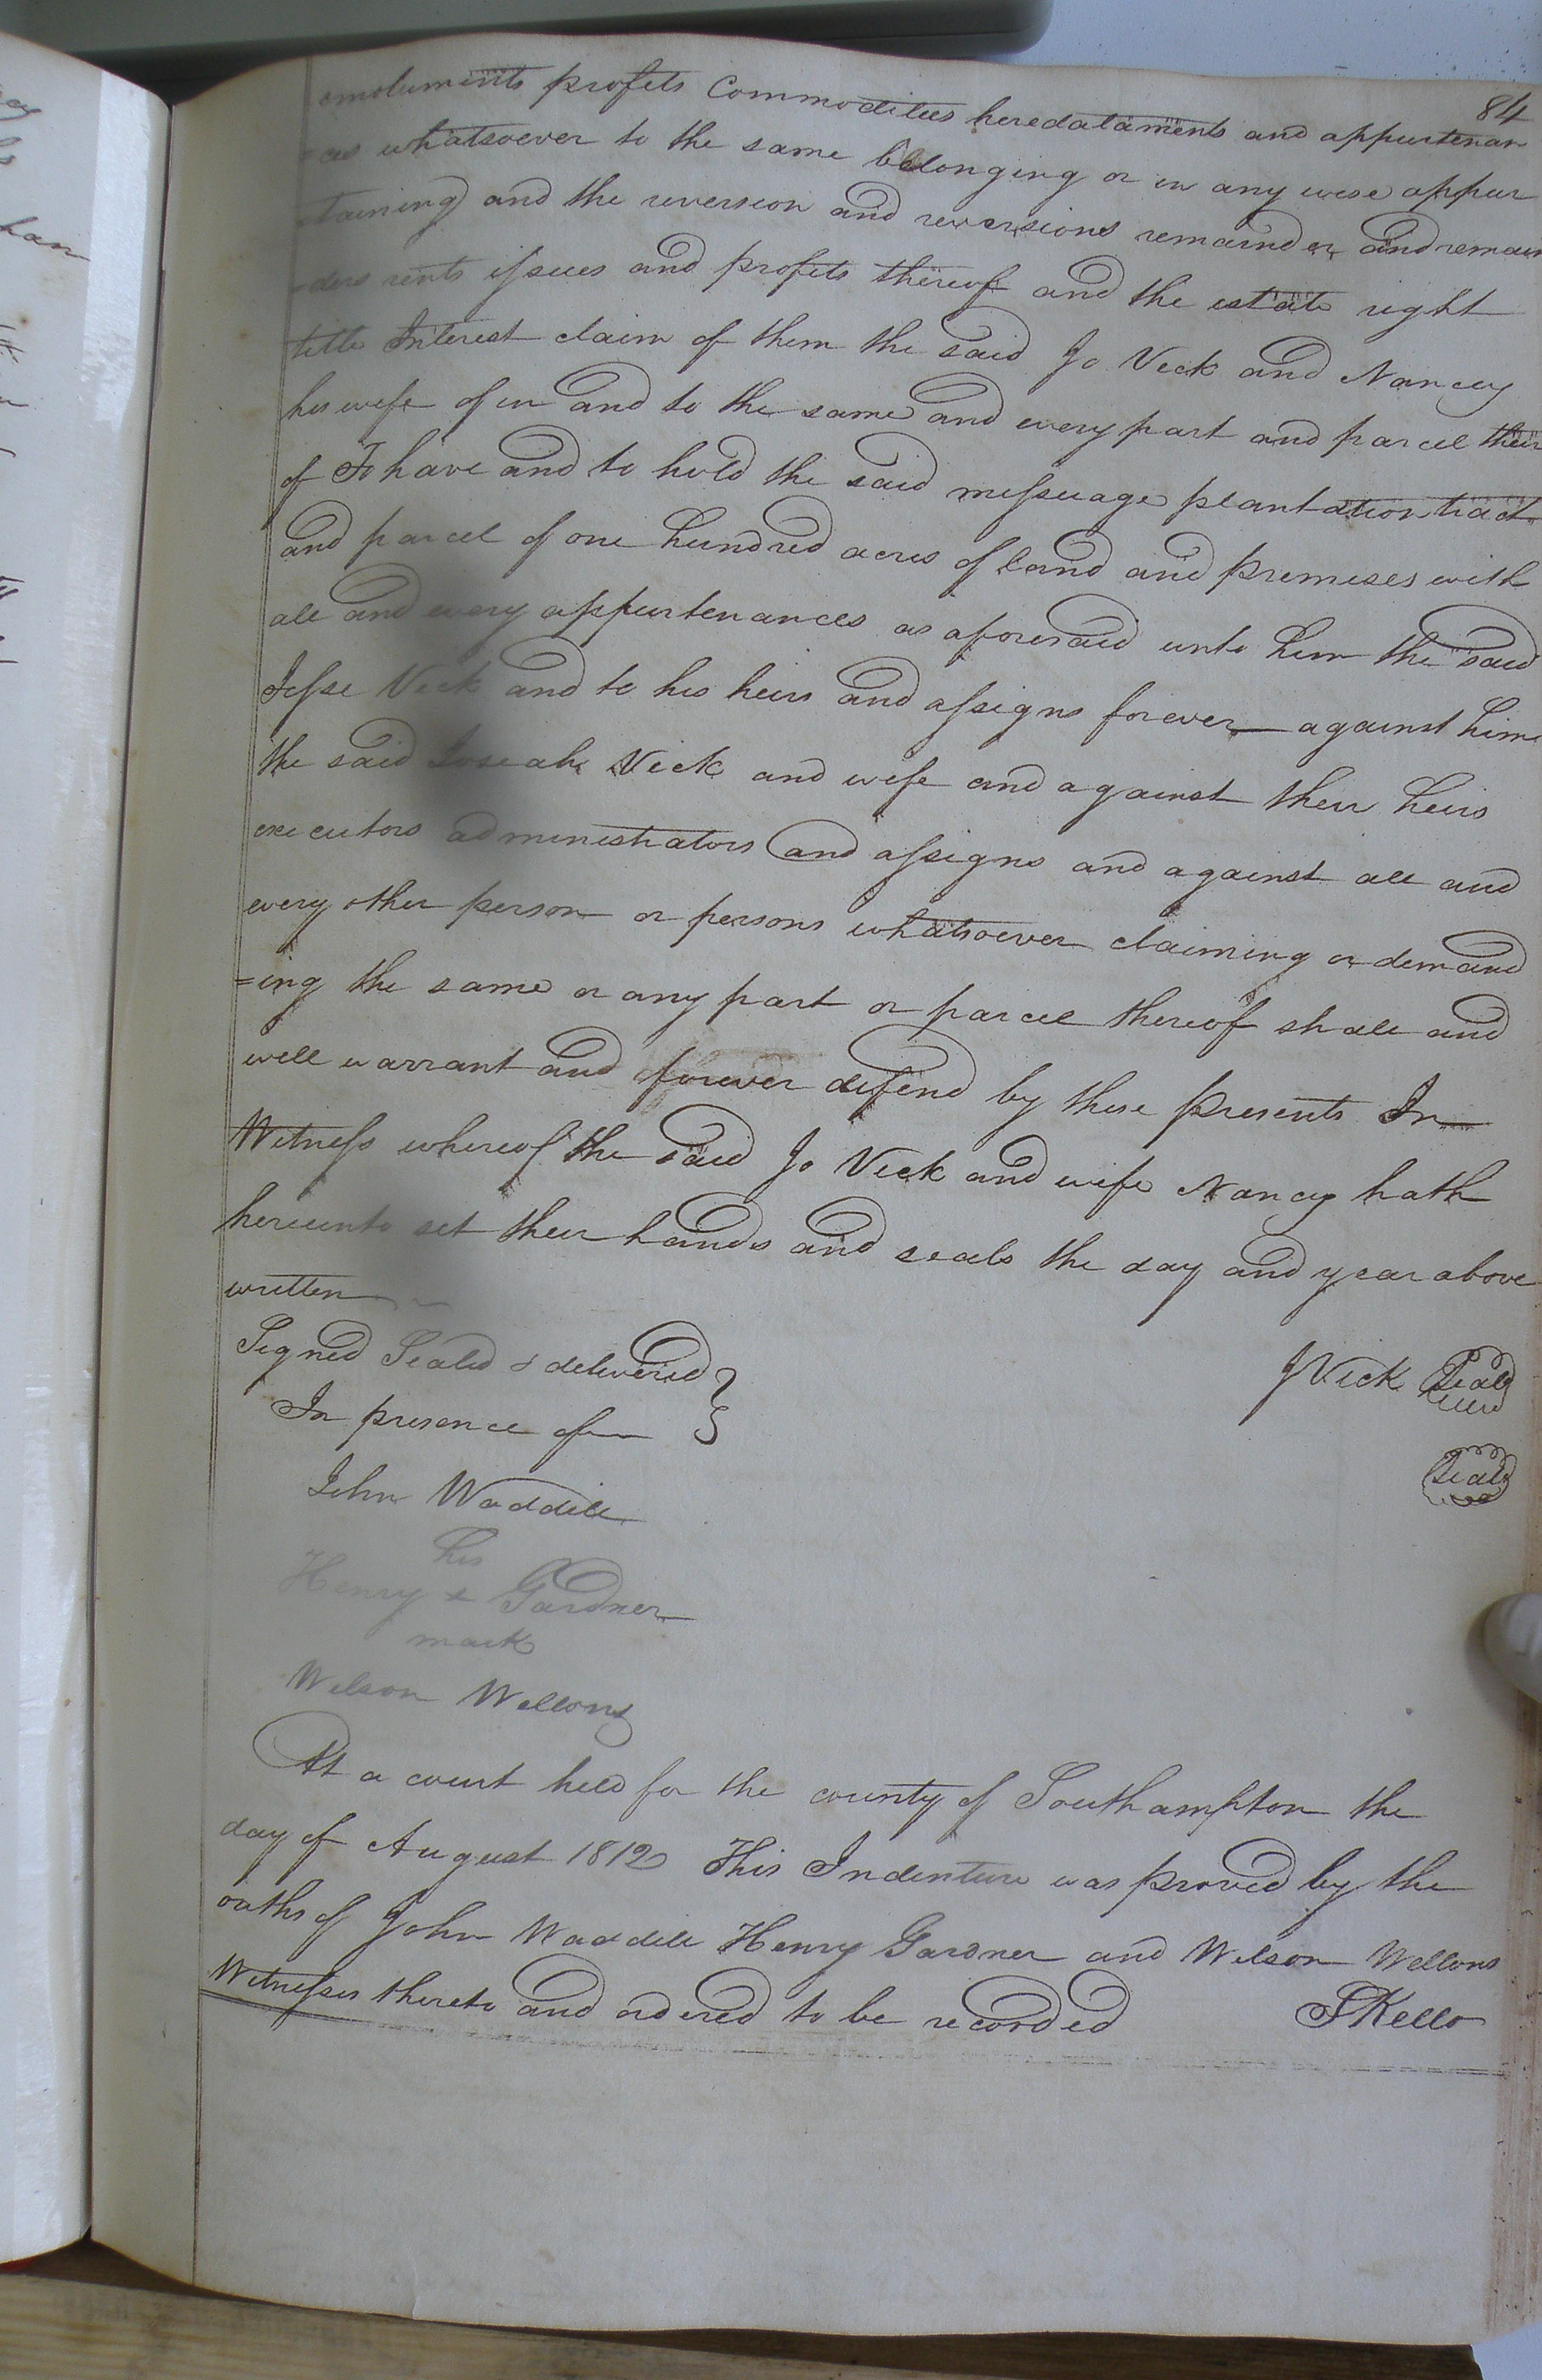 84
emoluments profits Commodities heredataments and appurtenan
=ces whatsoever to the same belonging or in any wise appur
=taining and the reversion and reversions remainder and remain
=ders rents issues and profits thereof and the estate right
title Interest claim of them the said Jo Vick and Nancy
his wife of in and to the same and every part and parcel their
of To have and to hold the said messuage plantation tract
and parcel of one hundred acres of land and premises with
all and every appurtenances as aforesaid unto him the said
Jesse Vick and to his heirs and assigns forever against him
the said Josiah Vick and wife and against their heirs
executors administrators and assigns and against all and
every other person or persons whatsoever claiming or demand
=ing the same or any part or parcel thereof shall and
will warrant and forever defend by these presents In
Witness whereof the said Jo Vick and wife Nancy hath
hereunto set their hands and seals the day and year above
written
Signed Sealed & delivered } J Vick Seal
In presence of Seal
John Waddill
his
Henry x Gardner
mark
Wilson Wellons
At a court held for the county of Southampton the
day of August 1812 This Indenture was proved by the
oaths of John Waddill Henry Gardner and Wilson Wellons
Witnesses thereto and ordered to be recorded SKello